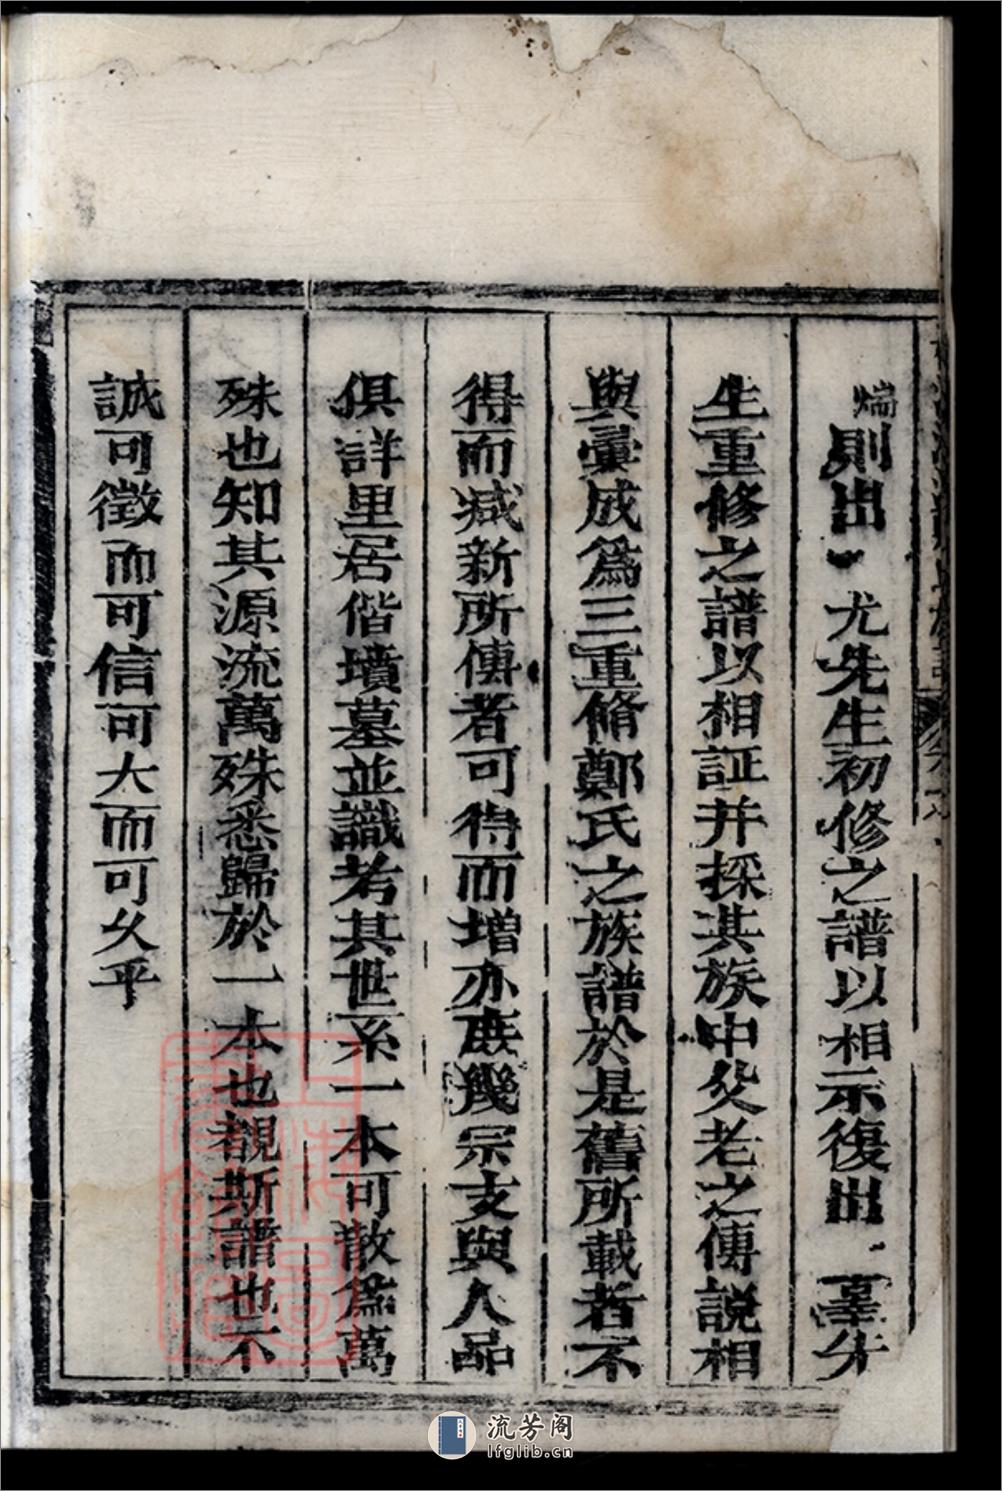 端則出 尤先生初修之譜以相示復出 辜先
生重修之譜以相証并採其族中父老之傳說相
與彙成為三重脩鄭氏之族譜於是舊所載者不
得而減新所傳者可得而增亦庶幾宗支與人品
俱詳里居偕墳墓並識考其世系一本可散為萬
殊也知其源流萬殊悉歸於一本也覩斯譜也不
誠可徵而可信可大而可久乎
上海圖書館藏
流芳阁
lfglib.cn